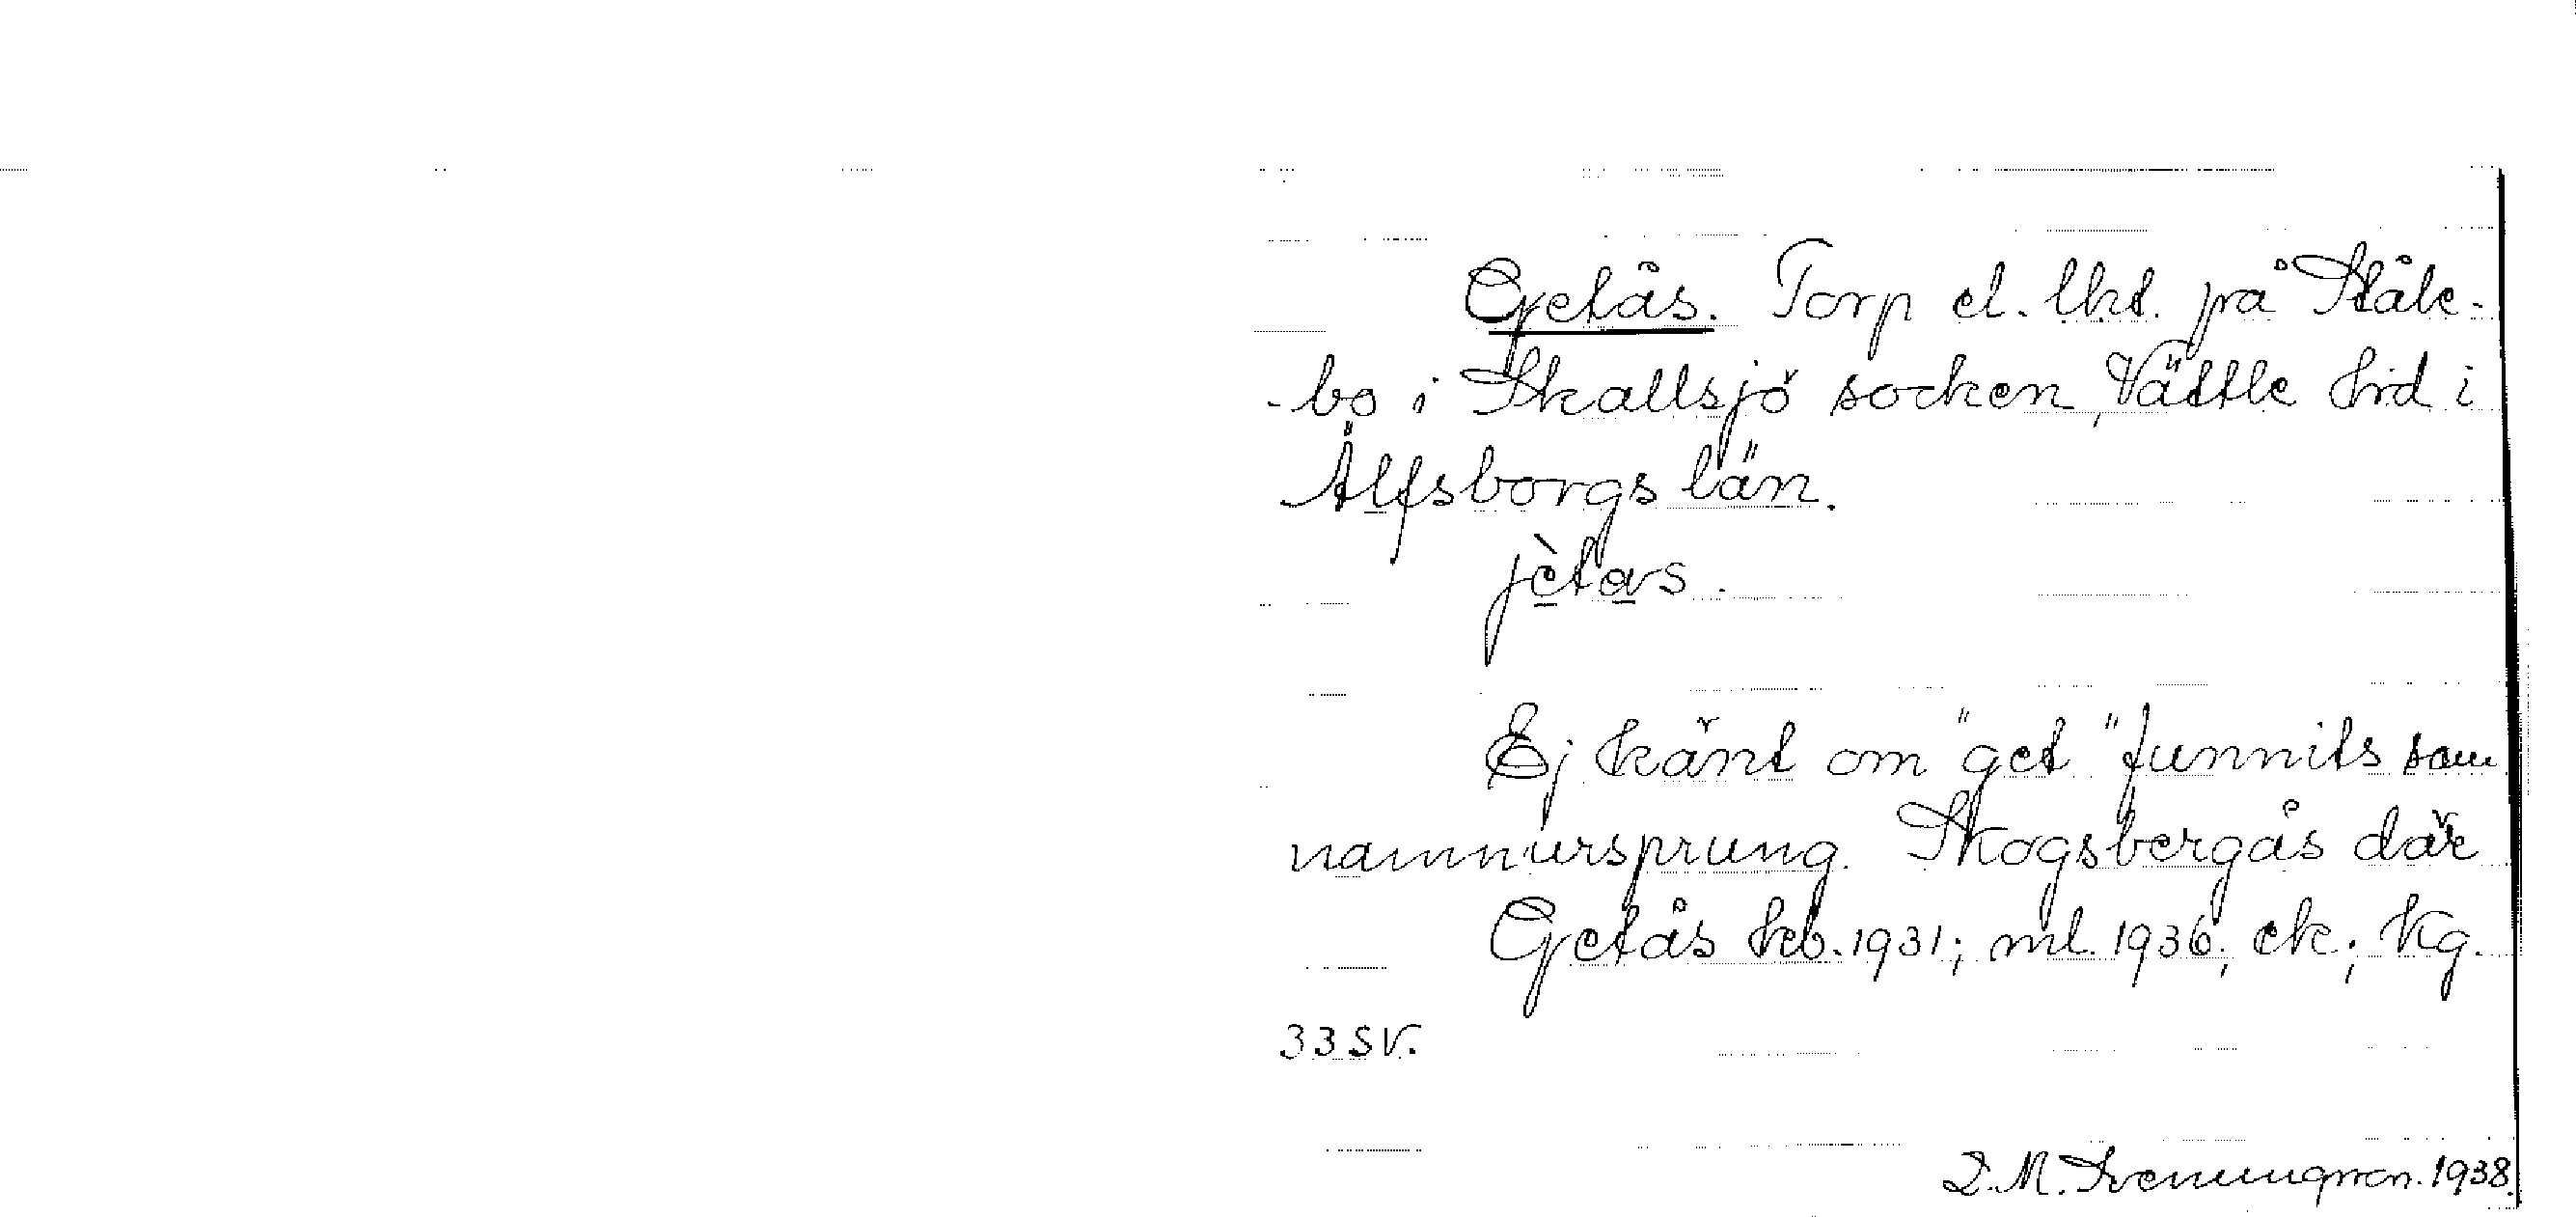 Getås. Torp el. lht. på Ståle-
-bo i Skallsjö socken, Vättle hrd i
Älfsborgs län.
jètas.
Ej känt om "get" funnits som
namnursprung. Skogsbergås där
Getås hb. 1931; ml. 1936; ek; Kg.
33 SV.
D. M. Svenungsson. 1938.